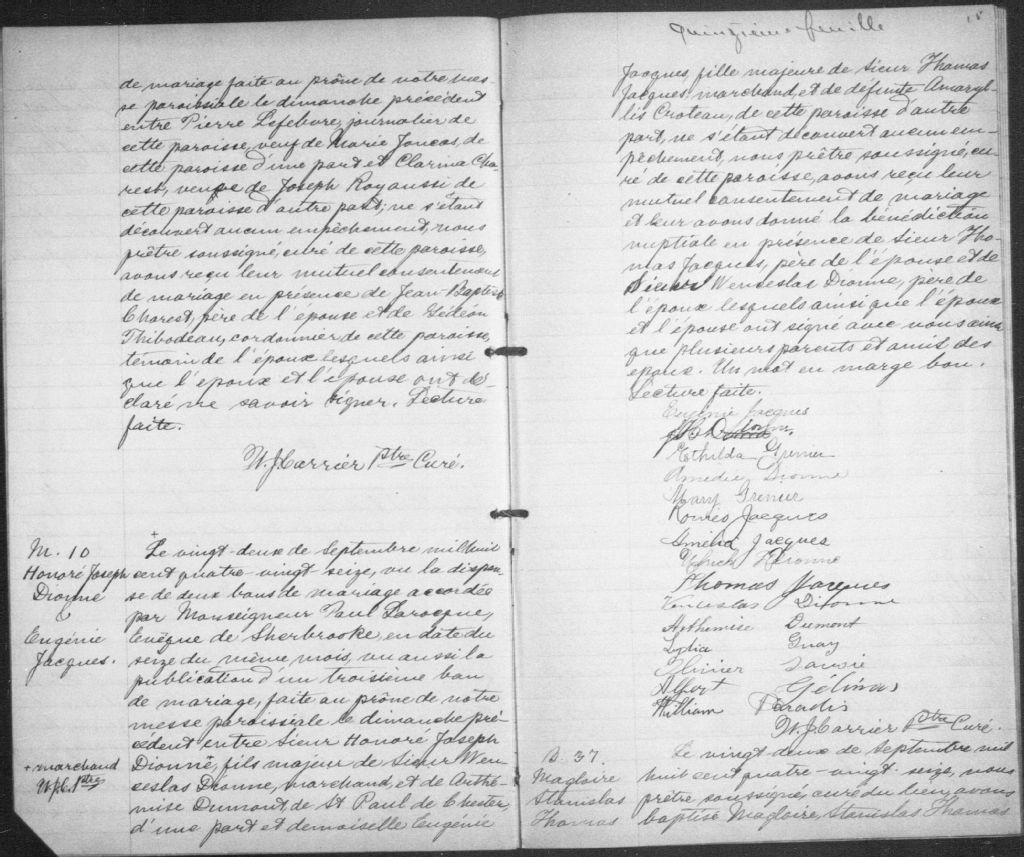 de mariage faite au prône de notre mes-
se paroissiale le dimanche précédent
entre Pierre Lefebvre, journalier de
cette paroisse, veuf de Marie Joncas, de
cette paroisse d'une part et Clarina Cha-
rest, veuve de Joseph Roy aussi de
cette paroisse d'autre part; ne s'étant
découvert aucun empêchement, nous
prêtre soussigné, curé de cette paroisse,
avons reçu leur mutuel consentement
de mariage en présence de Jean-Baptiste
Charest, père de l'épouse et de Gédéon
Thibodeau, cordonnier de cette paroisse,
témoin de l'époux lesquels ainsi
que l'époux et l'épouse ont dé-
claré ne savoir signer. Lecture
faite.
W. J. Carrier Ptre Curé.
M. 10
Honoré Joseph
Dionne
&
Eugénie
Jacques.
+
Le vingt-deux de Septembre mil huit
cent quatre-vingt-seize, vu la dispen-
se de deux bans de mariage accordée
par Monseigneur Paul Larocque,
Evêque de Sherbrooke, en date du
seize du même mois, vu aussi la
publication d'un troisième ban
de mariage, faite au prône de notre
messe paroissiale le dimanche pré-
cédent entre Sieur Honoré Joseph
Dionne, + fils majeur de Sieur Wen-
seslas Dionne, marchand, et de Arthé-
mise Dumont de St Paul de Chester,
d'une part et demoiselle Eugénie
+ marchand
W.J.C. Ptre
quinzième feuille
15
Jacques, fille majeure de Sieur Thomas
Jacques, marchand, et de défunte Amaryl-
lis Croteau, de cette paroisse d'autre
part, ne s'étant découvert aucun em-
pêchement, nous prêtre soussigné, cu-
ré de cette paroisse, avons reçu leur
mutuel consentement de mariage
et leur avons donné la bénédiction
nuptiale en présence de Sieur Tho-
mas Jacques, père de l'épouse et de
Sieur Wenseslas Dionne, père de
l'époux lesquels ainsi que l'époux
et l'épouse ont signé avec nous ainsi
que plusieurs parents et amis des
époux. Un mot en marge bon.
Lecture faite.
Eugénie Jacques
Dionne
Mathilda Grenier
Amédée Dionne
Mary Grenier
Roméo Jacques
Jacques
Ulrich Dionne
Thomas Jacques
Venceslas Dionne
Arthémise Dumont
Lydia Guay
Olivier Savoie
Albert Gélinas
William Paradis
W. J. Carrier Ptre Curé.
B. 37.
Magloire
Stanislas
Thomas
Le vingt deux de Septembre mil
huit cent quatre-vingt-seize, nous
prêtre soussigné curé du lieu, avons
baptisé Magloire, Stanislas Thomas